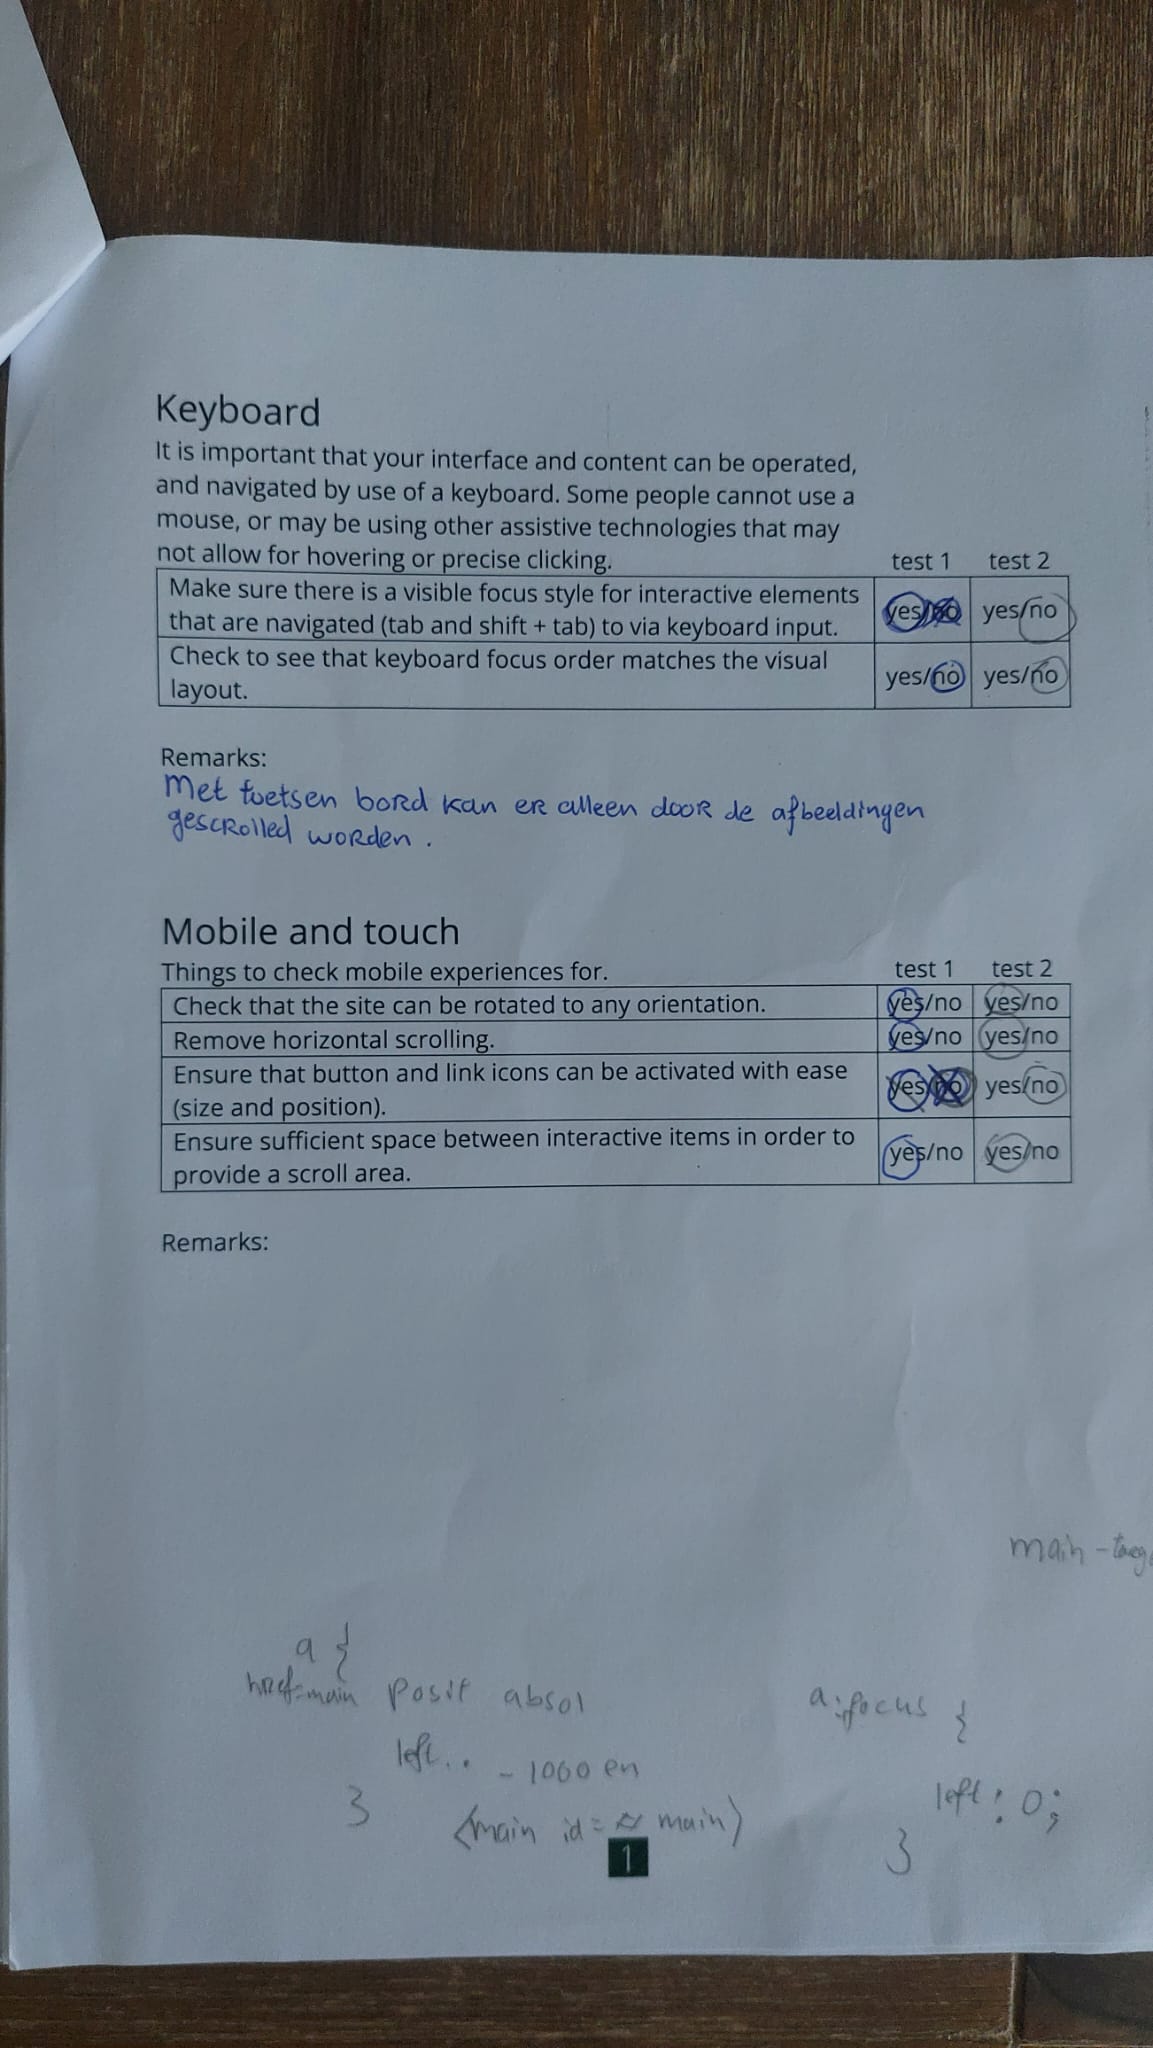 Keyboard
It is important that your interface and content can be operated,
and navigated by use of a keyboard. Some people cannot use a
mouse, or may be using other assistive technologies that may
not allow for hovering or precise clicking. test 1 test 2
Make sure there is a visible focus style for interactive elements
that are navigated (tab and shift + tab) to via keyboard input. yes/no yes/no
Check to see that keyboard focus order matches the visual
layout. yes/no yes/no
Remarks:
Met toetsen bord kan er alleen door de afbeeldingen
gescrolled worden.
Mobile and touch
Things to check mobile experiences for. test 1 test 2
Check that the site can be rotated to any orientation. yes/no yes/no
Remove horizontal scrolling. yes/no yes/no
Ensure that button and link icons can be activated with ease
(size and position). yes/no yes/no
Ensure sufficient space between interactive items in order to
provide a scroll area. yes/no yes/no
Remarks:
main
a {
href=main posit absol
left.. - 1000 em
}
<main id= main>
a:focus {
left: 0;
}
1